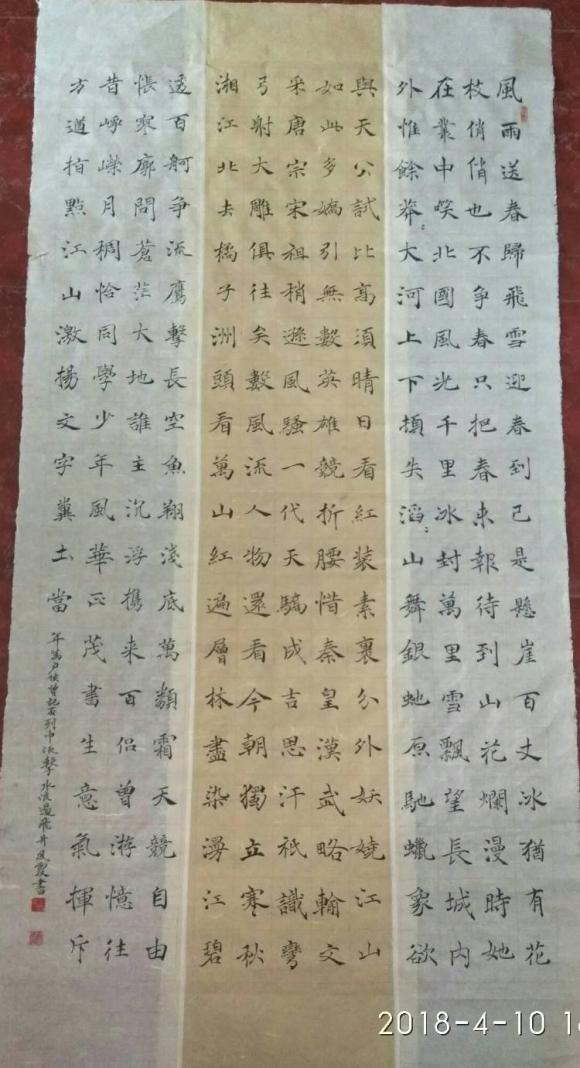 風雨送春歸飛雪迎春到已是懸崖百丈冰猶有花
枝俏俏也不爭春只把春来報待到山花爛漫時她
在叢中笑北國風光千里冰封萬里雪飄望長城内
外惟餘莽〻大河上下頓失滔〻山舞銀虵原馳蠟象欲
與天公試比高須晴日看紅装素裹分外妖嬈江山
如此多嬌引無數英雄競折腰惜秦皇漢武略輸文
采唐宗宋祖稍遜風騷一代天驕成吉思汗祇識彎
弓射大雕俱往矣數風流人物還看今朝獨立寒秋
湘江北去橘子洲頭看萬山紅遍層林盡染漫江碧
透百舸爭流鷹擊長空魚翔淺底萬類霜天競自由
悵寥廓問蒼茫大地誰主沉浮携来百侣曾游憶往
昔崢嶸月稠恰同學少年風華正茂書生意氣揮斥
方遒指點江山激揚文字糞土當
年萬户侯曾記否到中流擊水浪遏飛舟書
2018-4-10